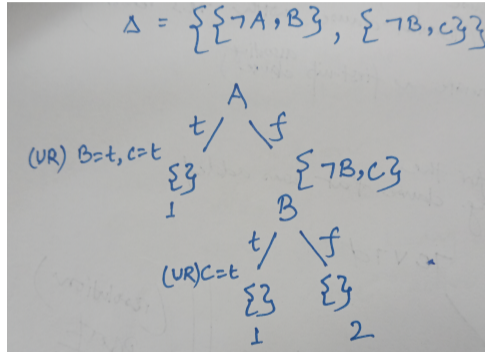 Δ = {{¬A, B}, {¬B, C}}
A
t f
(UR) B=t, C=t
{} {¬B, C}
1 B
t f
(UR) C=t
{} {}
1 2